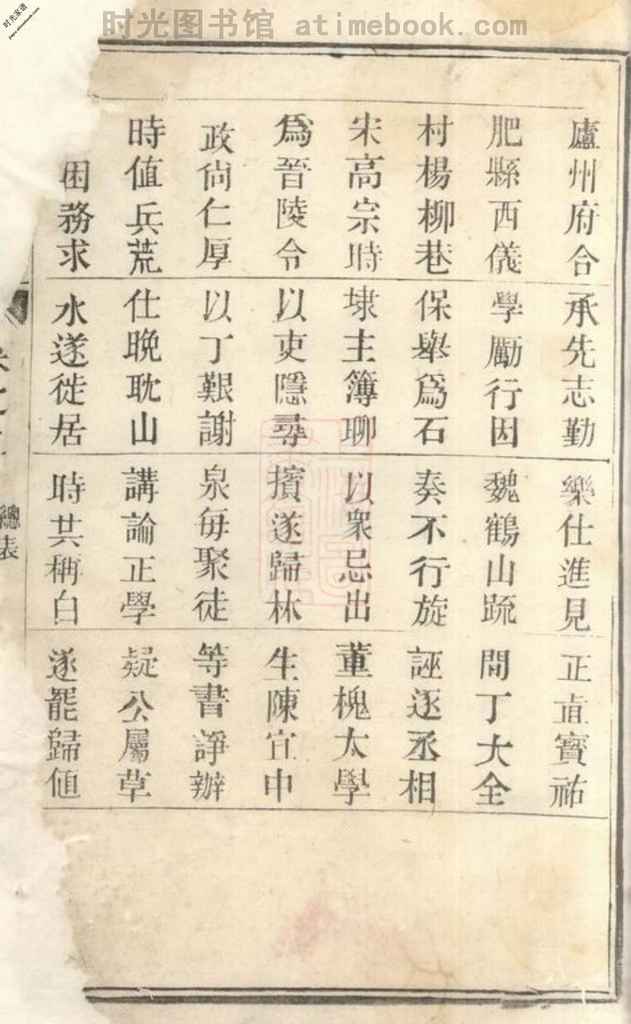 时光图书馆 atimebook.com
时光家谱
廬州府合
肥縣西儀
村楊柳巷
宋高宗時
爲晉陵令
政尙仁厚
時值兵荒
困務求
承先志勤
學勵行因
保舉爲石
埭主簿聊
以吏隱尋
以丁艱謝
仕晚耽山
水遂徙居
樂仕進見
魏鶴山䟽
奏不行旋
以衆忌出
擯遂歸林
泉每聚徒
講論正學
時共稱白
正直寶祐
間丁大全
誣逐丞相
董槐太學
生陳宜中
等書諍辦
疑公屬草
遂罷歸值
總表